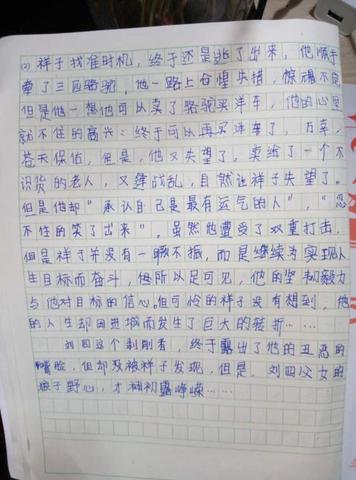 (2) 祥子找准时机，终于还是逃了出来，他顺手
牵了三匹骆驼，他一路上仓惶失措，惊魂不定，
但是他一想他可以卖了骆驼买洋车，他的心里
就不住的高兴：终于可以再买洋车了，万幸，
苍天保佑，但是，他又失望了。卖给了一个不
识货的老人，又逢战乱，自然让祥子失望了。
但是他却"承认自己是最有运气的人"，"忍
不住的笑了出来"。虽然她遭受了双重打击，
但是祥子并没有一蹶不振，而是继续为实现人
生目标而奋斗，他所以足可见，他的坚韧毅力
与他对目标的信心，但可怜的祥子没有想到，他
的人生却因进城而发生了巨大的转折……
刘四这个剥削者，终于露出了他的丑恶的
嘴脸，但却没被祥子发现，但是，刘四父女的
狼子野心，才初露峥嵘……